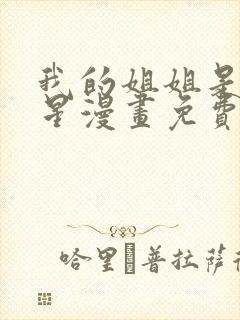 我的姐姐是
星漫畫免費
哈里 普拉薩